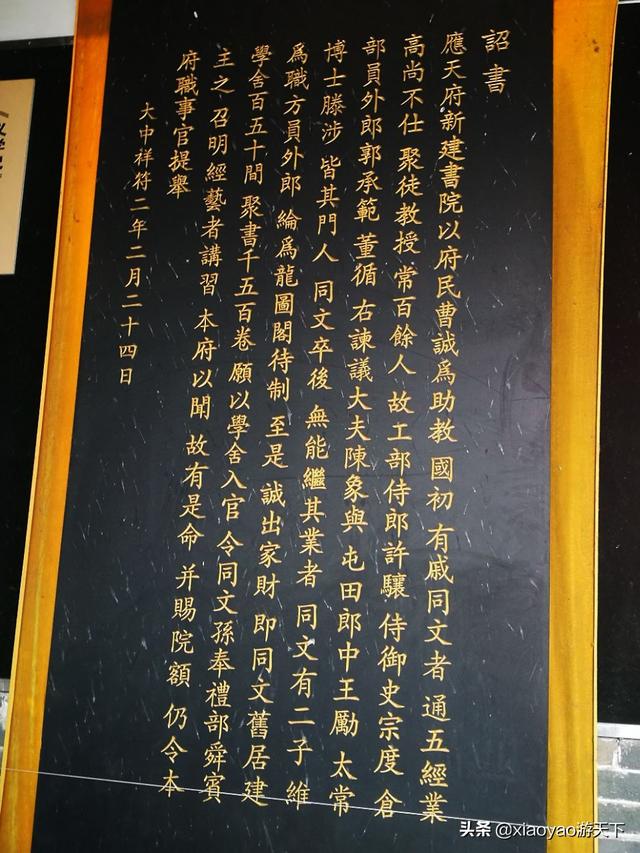 詔書
應天府新建書院以府民曹誠爲助教 國初 有戚同文者 通五經業
高尚不仕 聚徒教授 常百餘人 故工部侍郎許驤 侍御史宗度 倉
部員外郎郭承範 董循 右諫議大夫陳象輿 屯田郎中王勵 太常
博士滕涉 皆其門人 同文卒後 無能繼其業者 同文有二子 維
爲職方員外郎 綸爲龍圖閣待制 至是 誠出家財 即同文舊居建
學舍百五十間 聚書千五百卷 願以學舍入官 令同文孫奉禮部舜賓
主之 召明經藝者講習 本府以聞 故有是命 并賜院額 仍令本
府職事官提舉
大中祥符二年二月二十四日
头条 @xiaoyao游天下